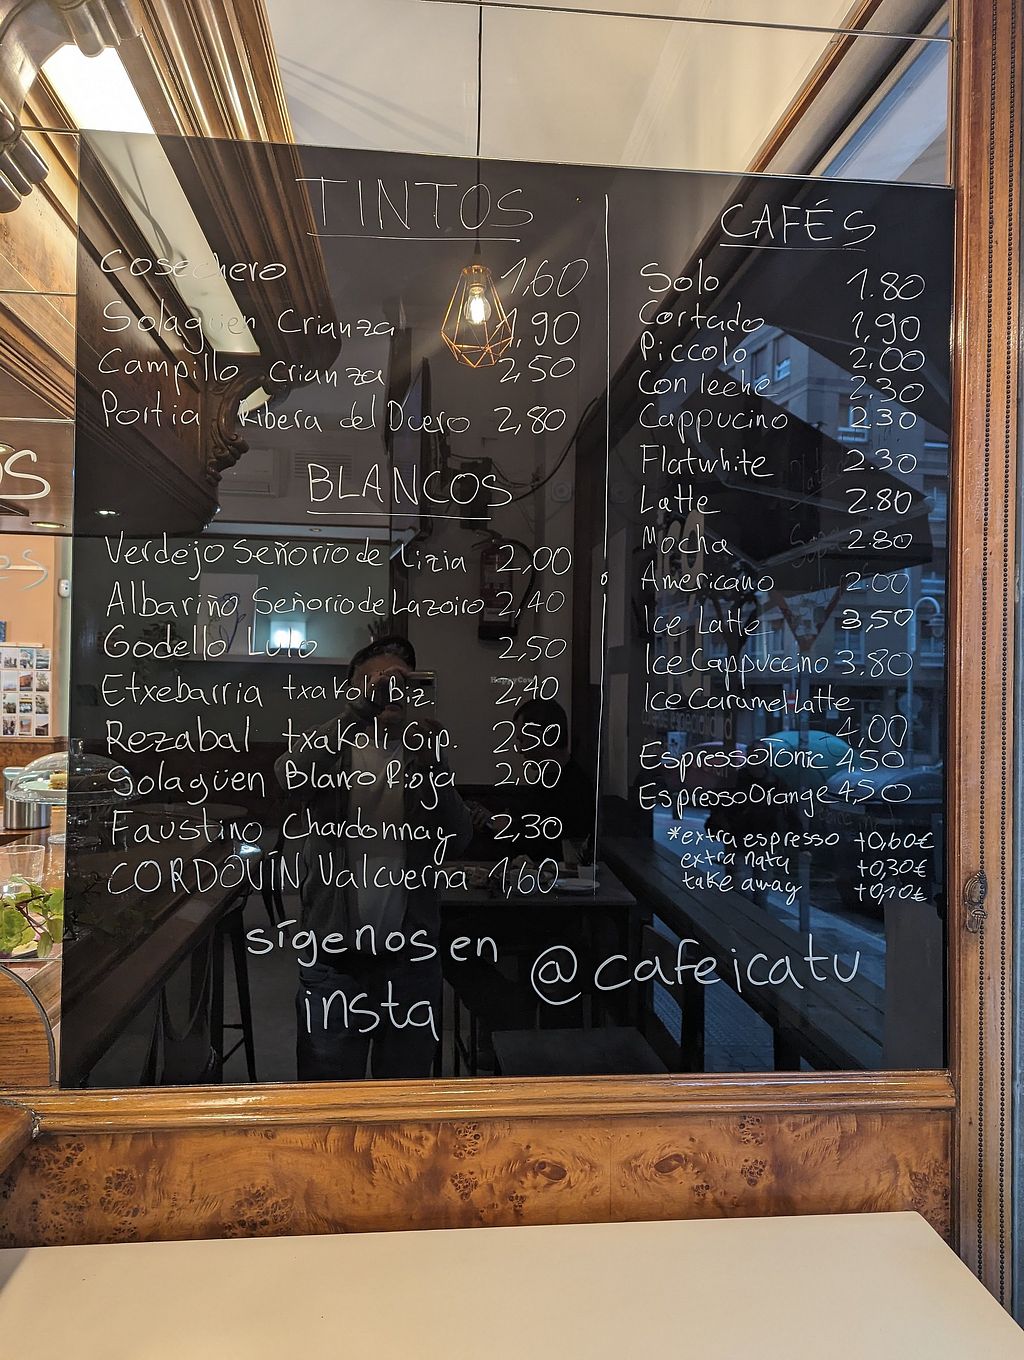 TINTOS
Cosechero 1,60
Solagüen Crianza 1,90
Campillo crianza 2,50
Portia Ribera del Duero 2,80
BLANCOS
Verdejo Señorio de Lizia 2,00
Albariño Señorio de Lazoiro 2,40
Godello Lulo 2,50
Etxebarria txakoli Biz. 2,40
Rezabal txakoli Gip. 2.50
Solagüen Blanco Rioja 2,00
Faustino Chardonnay 2,30
CORDOVÍN Valcuerna 1,60
CAFÉS
Solo 1.80
Cortado 1,90
Piccolo 2,00
Con leche 2.30
Cappucino 2.30
Flatwhite 2.30
Latte 2.80
Mocha 2.80
Americano 2.00
Ice Latte 3,50
Ice Cappuccino 3.80
Ice Caramel Latte
4,00
Espresso Tonic 4,50
Espresso Orange 4,50
*extra espresso +0,60€
extra naty +0,30€
take away +0,10€
sígenos en @cafeicatu
insta
HappyCow